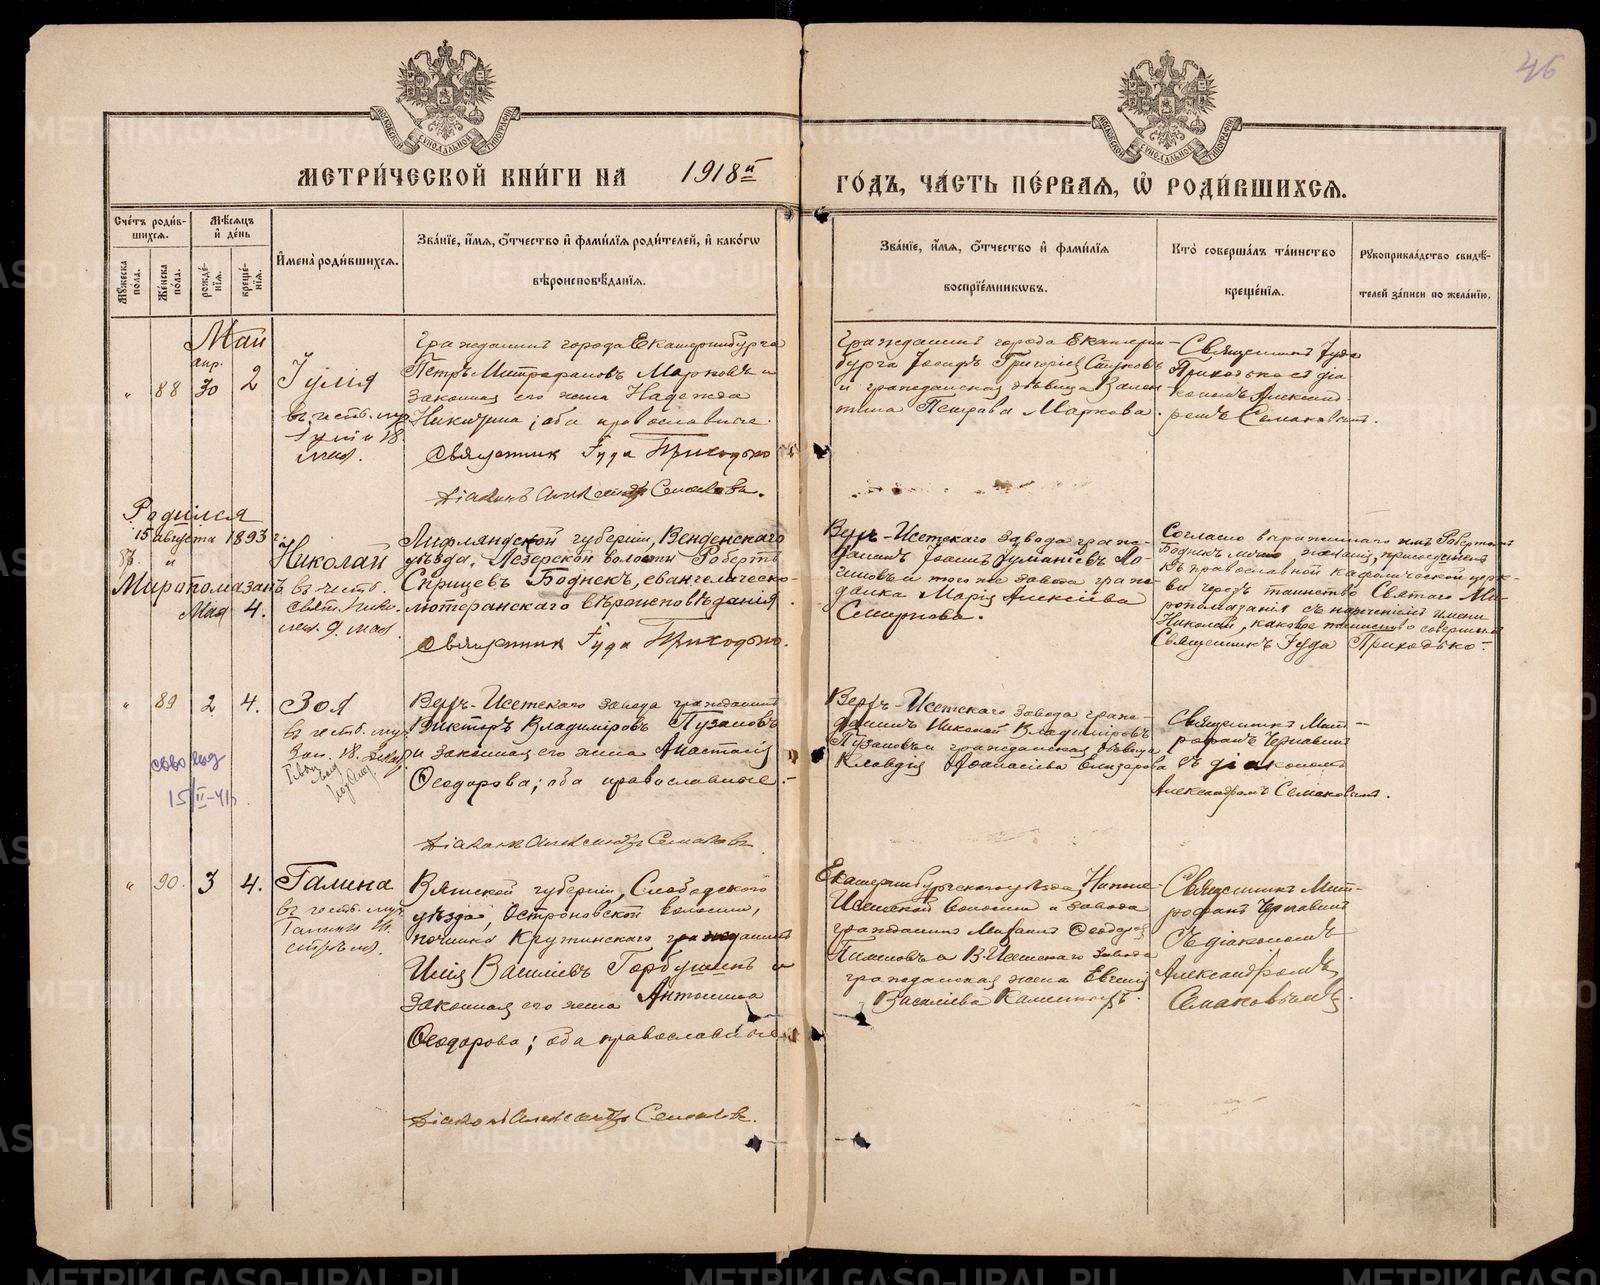 46
МОСКОВСКОЙ СѴНОДАЛЬНОЙ ТИПОГРАФІИ
МОСКОВСКОЙ СѴНОДАЛЬНОЙ ТИПОГРАФІИ
МЕТРИ́ЧЕСКОЙ КНИ́ГИ НА 1918й
ГО́ДЪ, ЧА́СТЬ ПЕ́РВАЯ, Ѡ҆ РОДИ́ВШИХСѦ.
Сче́тъ роди́в-
шихсѧ.
Мꙋ́жеска по́ла.
Же́нска по́ла.
Мѣ́сѧцъ и҆ де́нь
рожде́-нїѧ.
креще́-нїѧ.
И҆мена̀ роди́вшихсѧ.
Зва́нїе, и҆́мѧ, ѻ҆́тчество и҆ фами́лїѧ роди́телей, и҆ како́гѡ
вѣроисповѣ́данїѧ.
Зва́нїе, и҆́мѧ, ѻ҆́тчество и҆ фами́лїѧ
воспрїе́мникѡвъ.
Кто̀ соверша́лъ та́инство
креще́нїѧ.
Рꙋкоприкла́дство свидѣ́-
телей за́писи по жела́нїю.
Май
" 88
апр.
30 2
Іулія
въ честь му.
Іуліи 18
мая.
Гражданинъ города Екатеринбурга
Петръ Митрофановъ Марковъ и
законная его жена Надежда
Никитина; оба православные.
Священник Іуда Приходько
Діаконъ Александръ Семаковъ.
Гражданинъ города Екатерин-
бурга Іосифъ Григоріев
и гражданская дѣвица Вален-
тина Петрова Маркова.
Священникъ Іуда
Приходько съ діа-
кономъ Александ-
ромъ Семаковымъ.
Родился
15 августа 1893 г.
Муропомазанъ
Мая 4.
Николай
въ честь
свят. Нико-
лая 9 мая.
Лифляндской губерніи, Венденскаго
уѣзда, Лезерской волости Робертъ
Сприцевъ Боднек, евангелическо-
лютеранскаго вѣроисповѣданія.
Священник Іуда Приходько.
Верх-Исетскаго завода граж-
данинъ Іоаннъ Ло-
гиновъ и того же завода граж-
данка Марія Алексіева
Смирнова.
Согласно выраженнаго имъ Робертомъ
Боднекъ мною желанія, присоединенъ
къ православной кафолической церк-
ви чрезъ таинство Святаго Ми-
ропомазанія съ нареченіемъ имени
Николай, каковое таинство совершилъ
Священникъ Іуда Приходько.
" 89 2 4.
Зоя
въ честь му.
18
15/II-41
Верх-Исетскаго завода гражданинъ
Викторъ Владиміровъ Пузановъ
и законная его жена Анастасія
Ѳеодорова; оба православные.
Діаконъ Александръ Семаковъ
Верхъ-Исетскаго завода граж-
данинъ Николай Владиміровъ
Пузановъ и гражданская дѣвица
Клавдія Аѳанасіева
Священникъ Мит-
рофанъ Чернавинъ
съ діакономъ
Александромъ Семаковымъ.
" 90. 3 4.
Галина
въ честь муч.
Галины 16
апрѣля.
Вятской губерніи, Слободского
уѣзда, волости,
починка Кружинскаго гражданинъ
Илія Василіевъ Горбушинъ и
законная его жена Антонина
Ѳеодорова; оба православные
Діаконъ Александръ Семаковъ.
Екатеринбургскаго уѣзда, Нижне-
Исетской волости и завода
гражданинъ Михаилъ Ѳеодоров
Пименовъ и В.-Исетскаго завода
гражданская жена Евгенія
Василіева
Священникъ Мит-
рофанъ Чернавинъ
Съ діакономъ
Александромъ
Семаковымъ.
METRIKI.GASO-URAL.RU